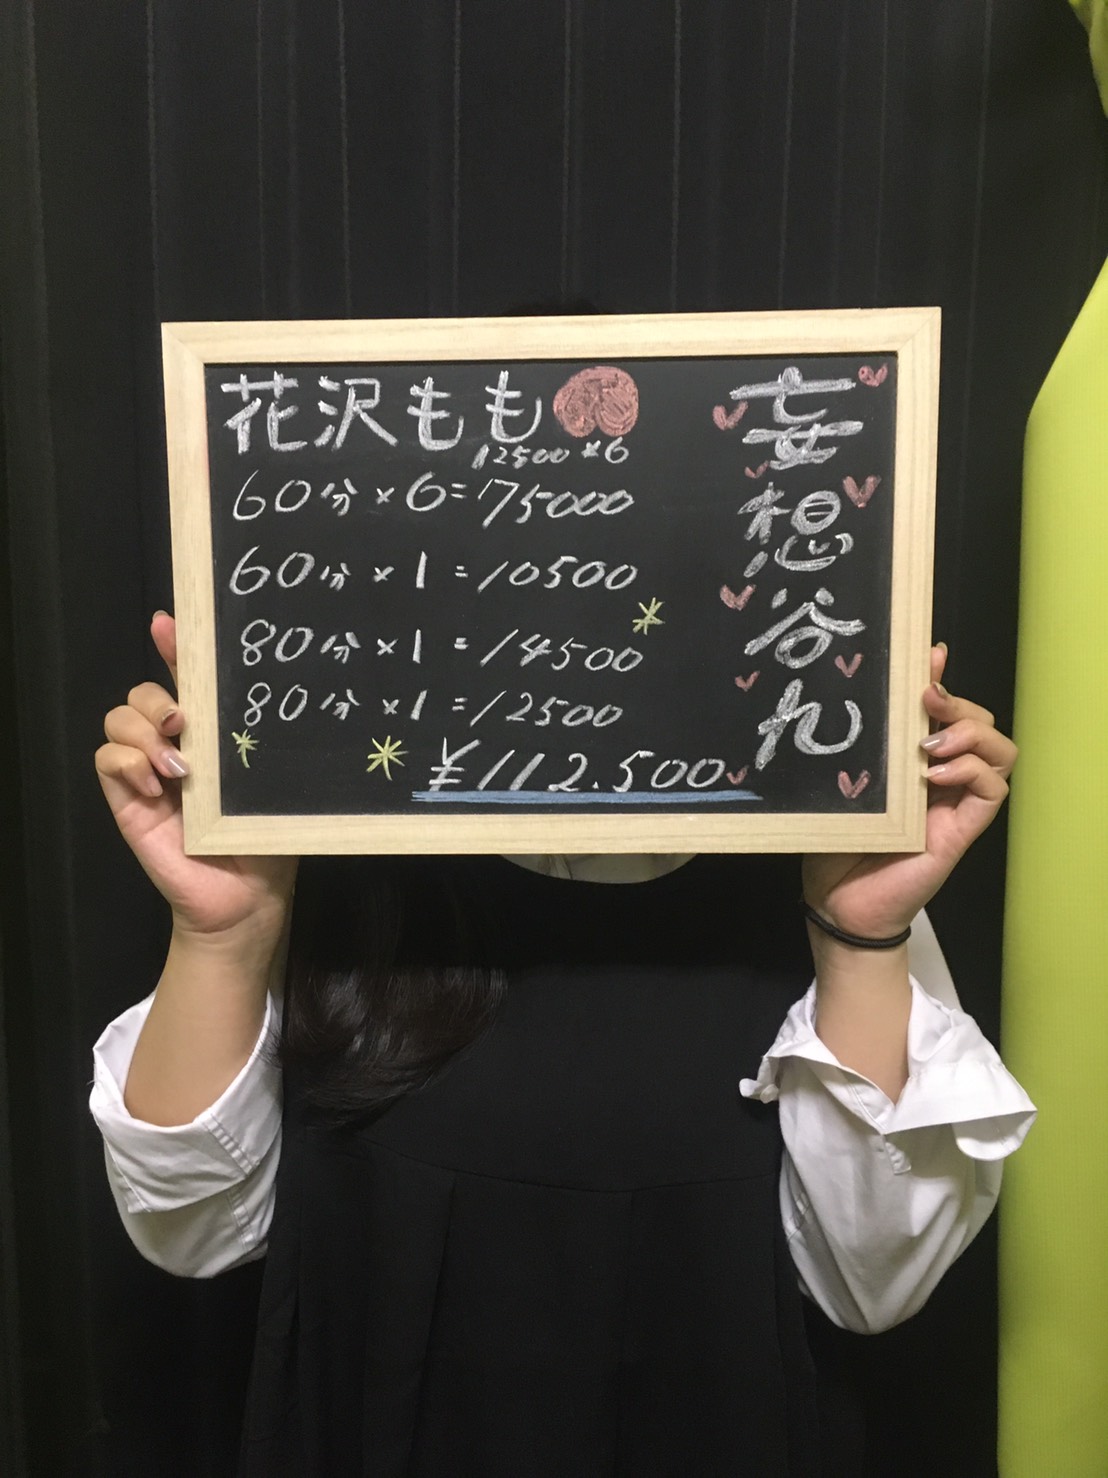 花沢もも
12500×6
60分×6=75000
60分×1=10500
80分×1=14500
80分×1=12500
¥112.500
妄想谷九